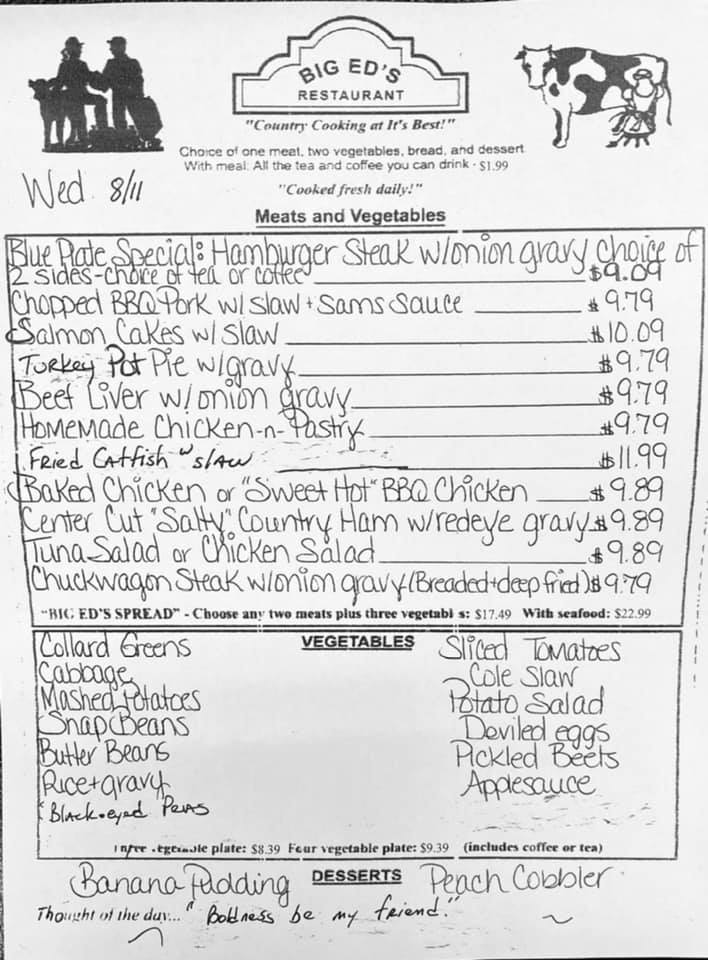 BIG ED'S
RESTAURANT
"Country Cooking at It's Best!"
Choice of one meat, two vegetables, bread, and dessert
With meal: All the tea and coffee you can drink - $1.99
Wed 8/11
"Cooked fresh daily!"
Meats and Vegetables
Blue Plate Special: Hamburger Steak w/onion gravy choice of
2 sides-choice of tea or coffee $9.09
Chopped BBQ Pork w/ slaw + Sams Sauce $9.79
Salmon Cakes w/ slaw $10.09
Turkey Pot Pie w/gravy $9.79
Beef Liver w/onion gravy $9.79
Homemade Chicken-n-Pastry $9.79
Fried Catfish w/ slaw $11.99
Baked Chicken or "Sweet Hot" BBQ Chicken $9.89
Center Cut "Salty" Country Ham w/redeye gravy $9.89
Tuna Salad or Chicken Salad $9.89
Chuckwagon Steak w/onion gravy (Breaded+deep fried) $9.79
"BIG ED'S SPREAD" - Choose any two meats plus three vegetabl s: $17.49 With seafood: $22.99
VEGETABLES
Collard Greens
Cabbage
Mashed Potatoes
Snap Beans
Butter Beans
Rice+gravy
Black-eyed Peas
Sliced Tomatoes
Cole Slaw
Potato Salad
Deviled eggs
Pickled Beets
Applesauce
plate: $8.39 Four vegetable plate: $9.39 (includes coffee or tea)
DESSERTS
Banana Pudding Peach Cobbler
Thought of the day... "Boldness be my friend."